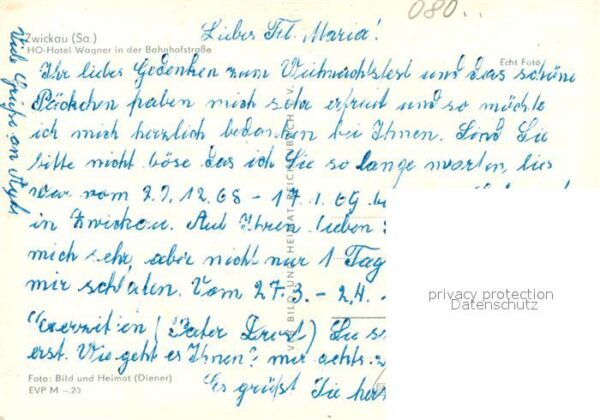 080..
Zwickau (Sa.)
HO-Hotel Wagner in der Bahnhofstraße
Echt Foto
Liebes Frl. Maria!
Ihr liebes Gedenken zum Weihnachtsfest und das schöne
Päckchen haben mich sehr erfreut und so möchte
ich mich herzlich bedanken bei Ihnen. Sind Sie
bitte nicht böse das ich Sie so lange warten lies
war vom 29.12.68 - 17.1.69
in Zwickau. Auf Ihren lieben
mich sehr aber nicht nur 1 Tag
mir schlafen. Vom 27.3. - 2.4.
Exerzitien (Pater Drost) Sie
erst. Wie geht es Ihnen? mir
Es grüßt Sie
Viele Grüße an
VEB BILD UND HEIMAT REICHENBACH I. V.
privacy protection
Datenschutz
Foto: Bild und Heimat (Diener)
EVP M -.20